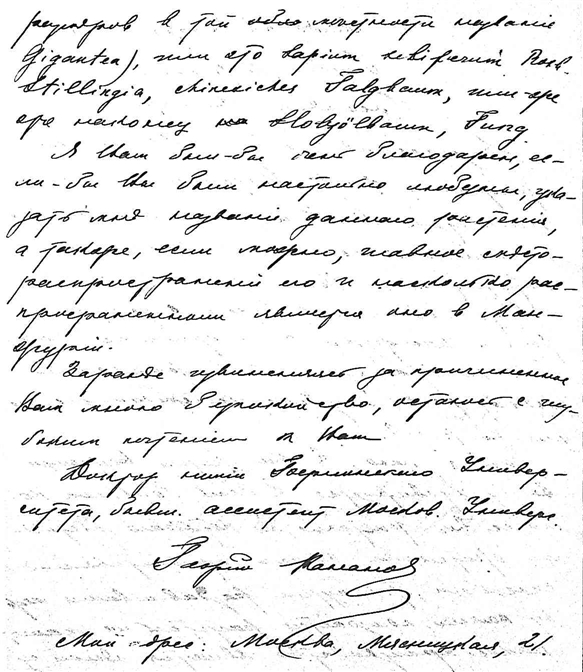 размѣров в той мѣстности названіе
Gigantea), или это Sapium sebiferum Roxb.
Stillingia, chinesisches Talgbaum, или-же
же наконец Holzölbaum, Tung.
Я Вам был-бы очень благодарен, ес-
ли-бы Вы были настолько любезны, ука-
зать мнѣ названіе даннаго растенія,
а также, если можно, главное
распространенія его и насколько рас-
пространенным является оно в Ман-
джуріи.
Заранѣе за причиненное
Вам мною безпокойство, остаюсь с глу-
боким почтеніем к Вам
Доктор химіи Берлинскаго Универ-
ситета, бывш. ассистент Москов. Универс.
Георгій
Мой адрес: Москва, Мясницкая, 21